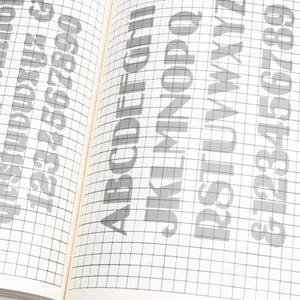 qrstuvwxyz &
1234567890
ABCDEFGHI
JKLMNOPQ
RSTUVWXYZ
&123456789